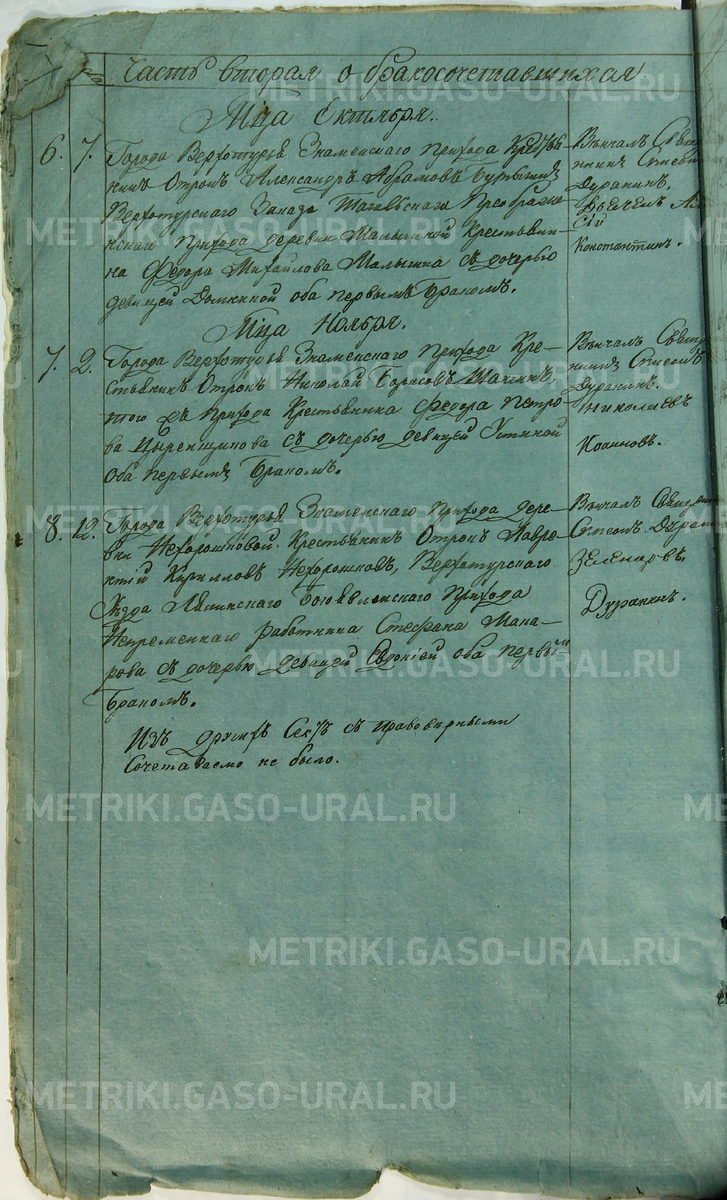 Часть вторая о бракосочетавшихся.
Мца Октября.
6. 7. Города Верхотурья Знаменскаго прихода Крестья-
нинъ Отрокъ Александръ Абрамовъ
Верхотурскаго Завода Преображе-
нскаго прихода деревни Малыгиной Крестьяни-
на Федора Михайлова Малыгина съ дочерью
девицей Домникой оба первымъ Бракомъ.
Венчалъ Свящ
нникъ Стефанъ
Дуракинъ.
Константинъ.
Мца Ноября.
7. 2. Города Верхотурья Знаменскаго прихода Кре-
стьянинъ Отрокъ Николай Борисовъ
того жъ прихода Крестьянина Федора Петро-
ва съ дочерью девицей Устиной
оба первымъ Бракомъ.
Венчалъ Свящ
нникъ Стефанъ
Дуракинъ.
Николаевъ
Иоанновъ.
8. 12. Города Верхотурья Знаменскаго прихода дере-
вни Нехорошковой Крестьянинъ Отрокъ Лавре-
нтий Кирилловъ Нехорошковъ, Верхотурскаго
Уезда Лялинскаго Богоявленскаго прихода
Непременнаго работника Стефана Мака-
рова съ дочерью девицей Евдокіей оба первымъ
Бракомъ.
Венчалъ Священ
Стефанъ Дурак
Дуракинъ.
Изъ другихъ Сектъ съ правоверными
Сочетаваемо не было.
METRIKI.GASO-URAL.RU